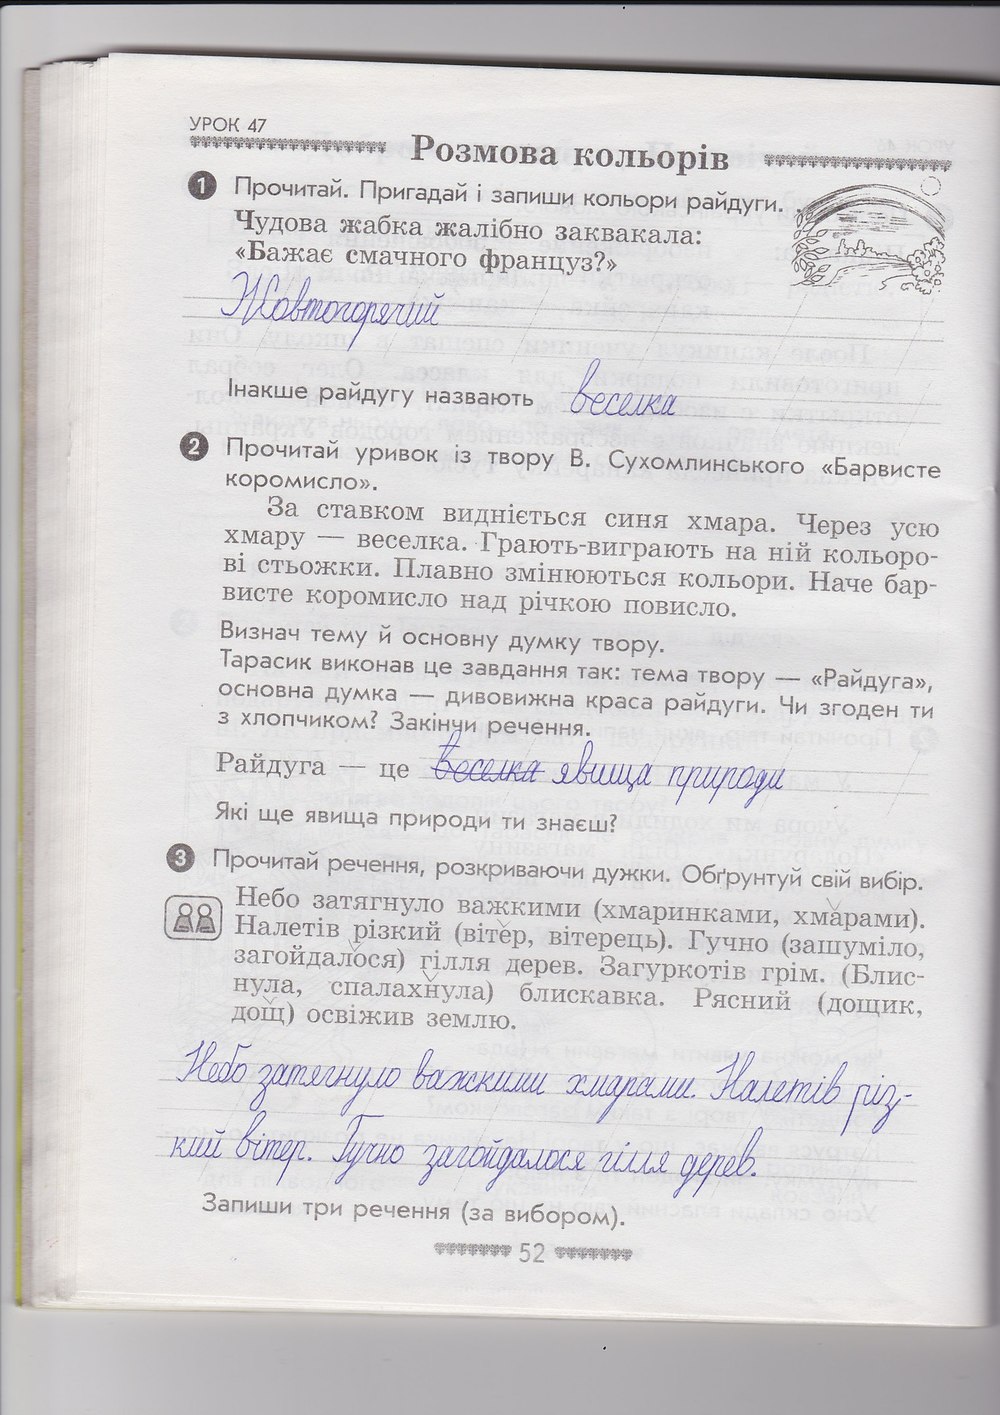 УРОК 47
Розмова кольорів
1 Прочитай. Пригадай і запиши кольори райдуги.
Чудова жабка жалібно заквакала:
«Бажає смачного француз?»
Жовтогорячий
Інакше райдугу назвають веселка
2 Прочитай уривок із твору В. Сухомлинського «Барвисте
коромисло».
За ставком видніється синя хмара. Через усю
хмару — веселка. Грають-виграють на ній кольоро-
ві стьожки. Плавно змінюються кольори. Наче бар-
висте коромисло над річкою повисло.
Визнач тему й основну думку твору.
Тарасик виконав це завдання так: тема твору — «Райдуга»,
основна думка — дивовижна краса райдуги. Чи згоден ти
з хлопчиком? Закінчи речення.
Райдуга — це веселка явища природи
Які ще явища природи ти знаєш?
3 Прочитай речення, розкриваючи дужки. Обґрунтуй свій вибір.
Небо затягнуло важкими (хмаринками, хмарами).
Налетів різкий (вітер, вітерець). Гучно (зашуміло,
загойдалося) гілля дерев. Загуркотів грім. (Блис-
нула, спалахнула) блискавка. Рясний (дощик,
дощ) освіжив землю.
Небо затягнуло важкими хмарами. Налетів різ-
кий вітер. Гучно загойдалося гілля дерев.
Запиши три речення (за вибором).
52